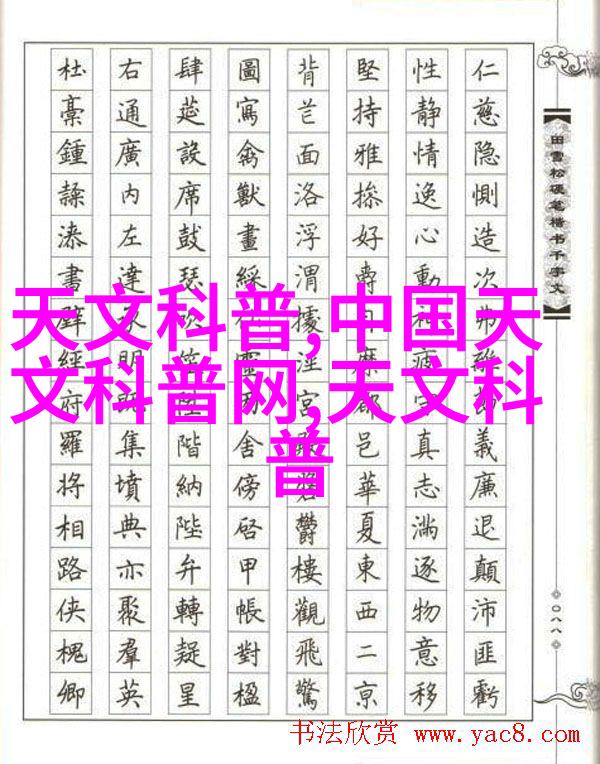 天文科普,中国天
文科普网,天文科
普
田雪松硬笔楷书千字文
仁慈隐惻造次弗離節義廉退顛沛匪虧
性静情逸心動神疲守真志滿逐物意移
堅持雅操好爵自縻都邑華夏東西二京
背芒面洛浮渭據涇宮殿盤鬱樓觀飛驚
圖寫禽獸畫綵仙靈丙舍傍啓甲帳對楹
肆筵設席鼓瑟吹笙陞階納陛弁轉疑星
右通廣内左達承明既集墳典亦聚羣英
杜稾鍾隸漆書壁經府羅将相路侠槐卿
〇八八
书法欣赏 www.yac8.com